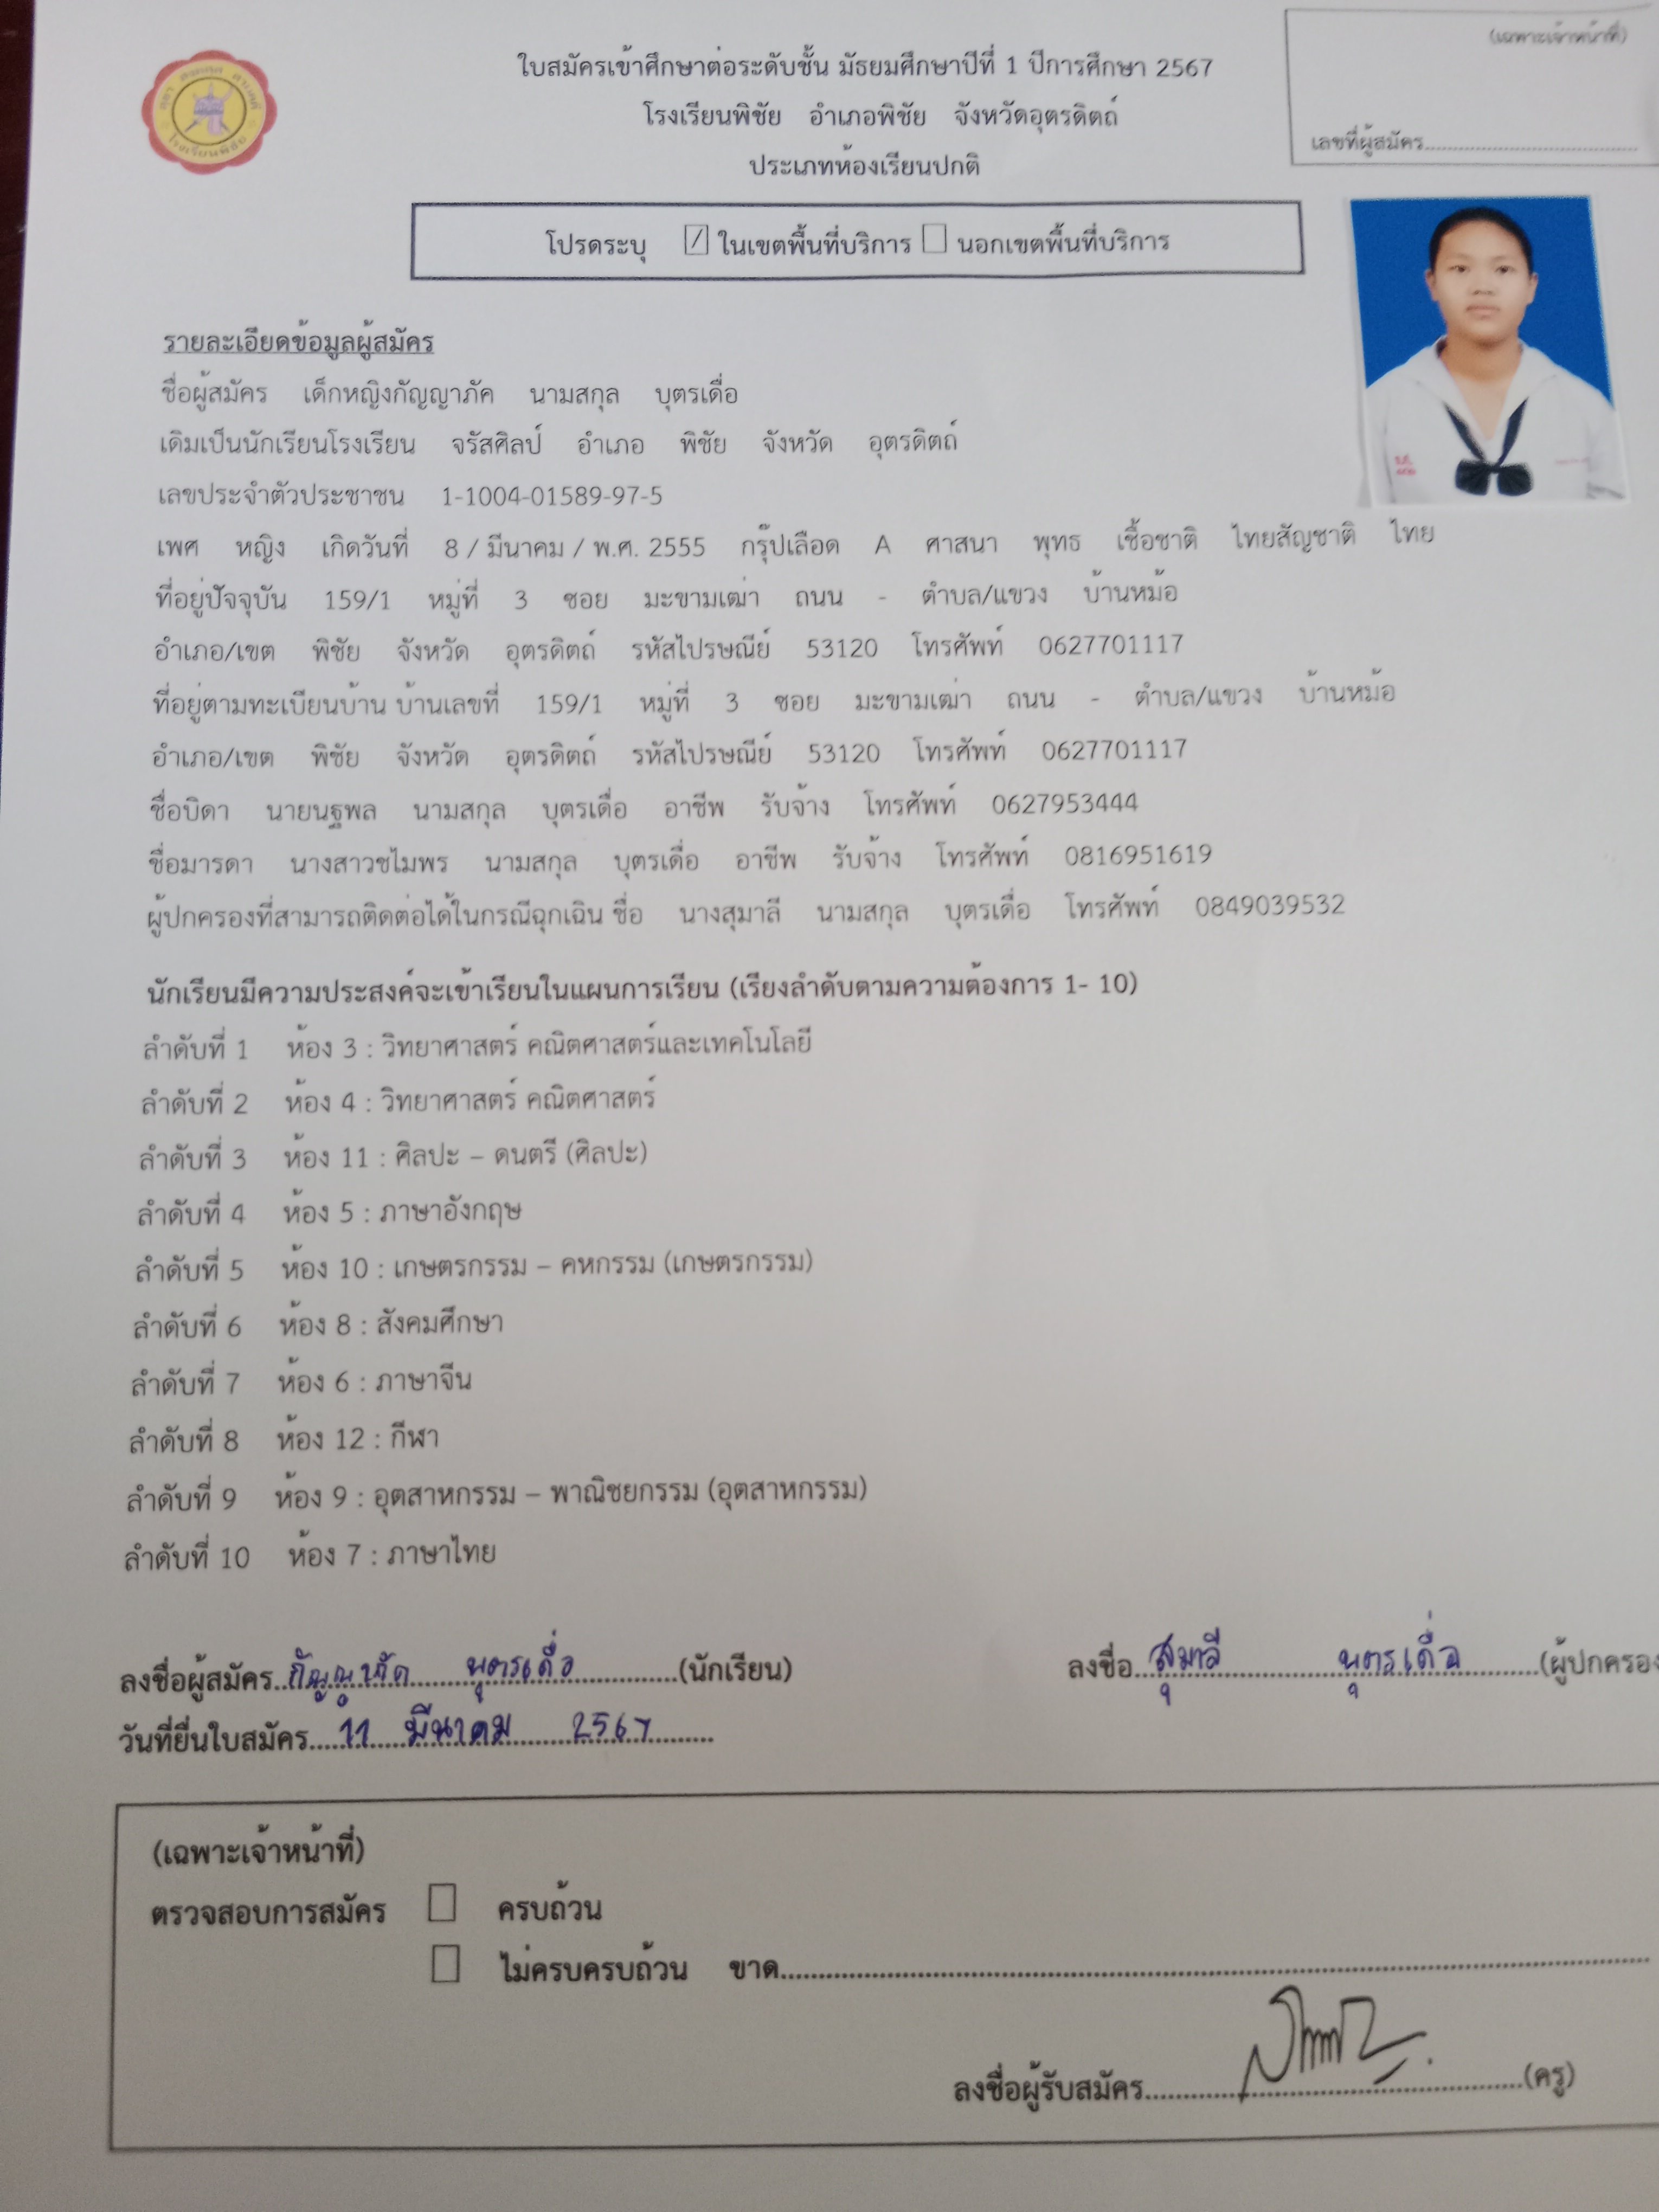 (เฉพาะเจ้าหน้าที่)
ใบสมัครเข้าศึกษาต่อระดับชั้น มัธยมศึกษาปีที่ 1 ปีการศึกษา 2567
โรงเรียนพิชัย อำเภอพิชัย จังหวัดอุตรดิตถ์
เลขที่ผู้สมัคร
ประเภทห้องเรียนปกติ
โรงเรียนพิชัย
โปรดระบุ ☑ ในเขตพื้นที่บริการ ☐ นอกเขตพื้นที่บริการ
รายละเอียดข้อมูลผู้สมัคร
ชื่อผู้สมัคร เด็กหญิงกัญญาภัค นามสกุล บุตรเดื่อ
เดิมเป็นนักเรียนโรงเรียน จรัสศิลป์ อำเภอ พิชัย จังหวัด อุตรดิตถ์
เลขประจำตัวประชาชน 1-1004-01589-97-5
เพศ หญิง เกิดวันที่ 8 / มีนาคม / พ.ศ. 2555 กรุ๊ปเลือด A ศาสนา พุทธ เชื้อชาติ ไทยสัญชาติ ไทย
ที่อยู่ปัจจุบัน 159/1 หมู่ที่ 3 ซอย มะขามเฒ่า ถนน - ตำบล/แขวง บ้านหม้อ
อำเภอ/เขต พิชัย จังหวัด อุตรดิตถ์ รหัสไปรษณีย์ 53120 โทรศัพท์ 0627701117
ที่อยู่ตามทะเบียนบ้าน บ้านเลขที่ 159/1 หมู่ที่ 3 ซอย มะขามเฒ่า ถนน - ตำบล/แขวง บ้านหม้อ
อำเภอ/เขต พิชัย จังหวัด อุตรดิตถ์ รหัสไปรษณีย์ 53120 โทรศัพท์ 0627701117
ชื่อบิดา นายนฐพล นามสกุล บุตรเดื่อ อาชีพ รับจ้าง โทรศัพท์ 0627953444
ชื่อมารดา นางสาวชไมพร นามสกุล บุตรเดื่อ อาชีพ รับจ้าง โทรศัพท์ 0816951619
ผู้ปกครองที่สามารถติดต่อได้ในกรณีฉุกเฉิน ชื่อ นางสุมาลี นามสกุล บุตรเดื่อ โทรศัพท์ 0849039532
นักเรียนมีความประสงค์จะเข้าเรียนในแผนการเรียน (เรียงลำดับตามความต้องการ 1- 10)
ลำดับที่ 1 ห้อง 3 : วิทยาศาสตร์ คณิตศาสตร์และเทคโนโลยี
ลำดับที่ 2 ห้อง 4 : วิทยาศาสตร์ คณิตศาสตร์
ลำดับที่ 3 ห้อง 11 : ศิลปะ – ดนตรี (ศิลปะ)
ลำดับที่ 4 ห้อง 5 : ภาษาอังกฤษ
ลำดับที่ 5 ห้อง 10 : เกษตรกรรม – คหกรรม (เกษตรกรรม)
ลำดับที่ 6 ห้อง 8 : สังคมศึกษา
ลำดับที่ 7 ห้อง 6 : ภาษาจีน
ลำดับที่ 8 ห้อง 12 : กีฬา
ลำดับที่ 9 ห้อง 9 : อุตสาหกรรม – พาณิชยกรรม (อุตสาหกรรม)
ลำดับที่ 10 ห้อง 7 : ภาษาไทย
ลงชื่อผู้สมัคร กัญญาภัค บุตรเดื่อ (นักเรียน) ลงชื่อ สุมาลี บุตรเดื่อ (ผู้ปกครอง
วันที่ยื่นใบสมัคร 11 มีนาคม 2567
(เฉพาะเจ้าหน้าที่)
ตรวจสอบการสมัคร ☐ ครบถ้วน
☐ ไม่ครบครบถ้วน ขาด
ลงชื่อผู้รับสมัคร (ครู)